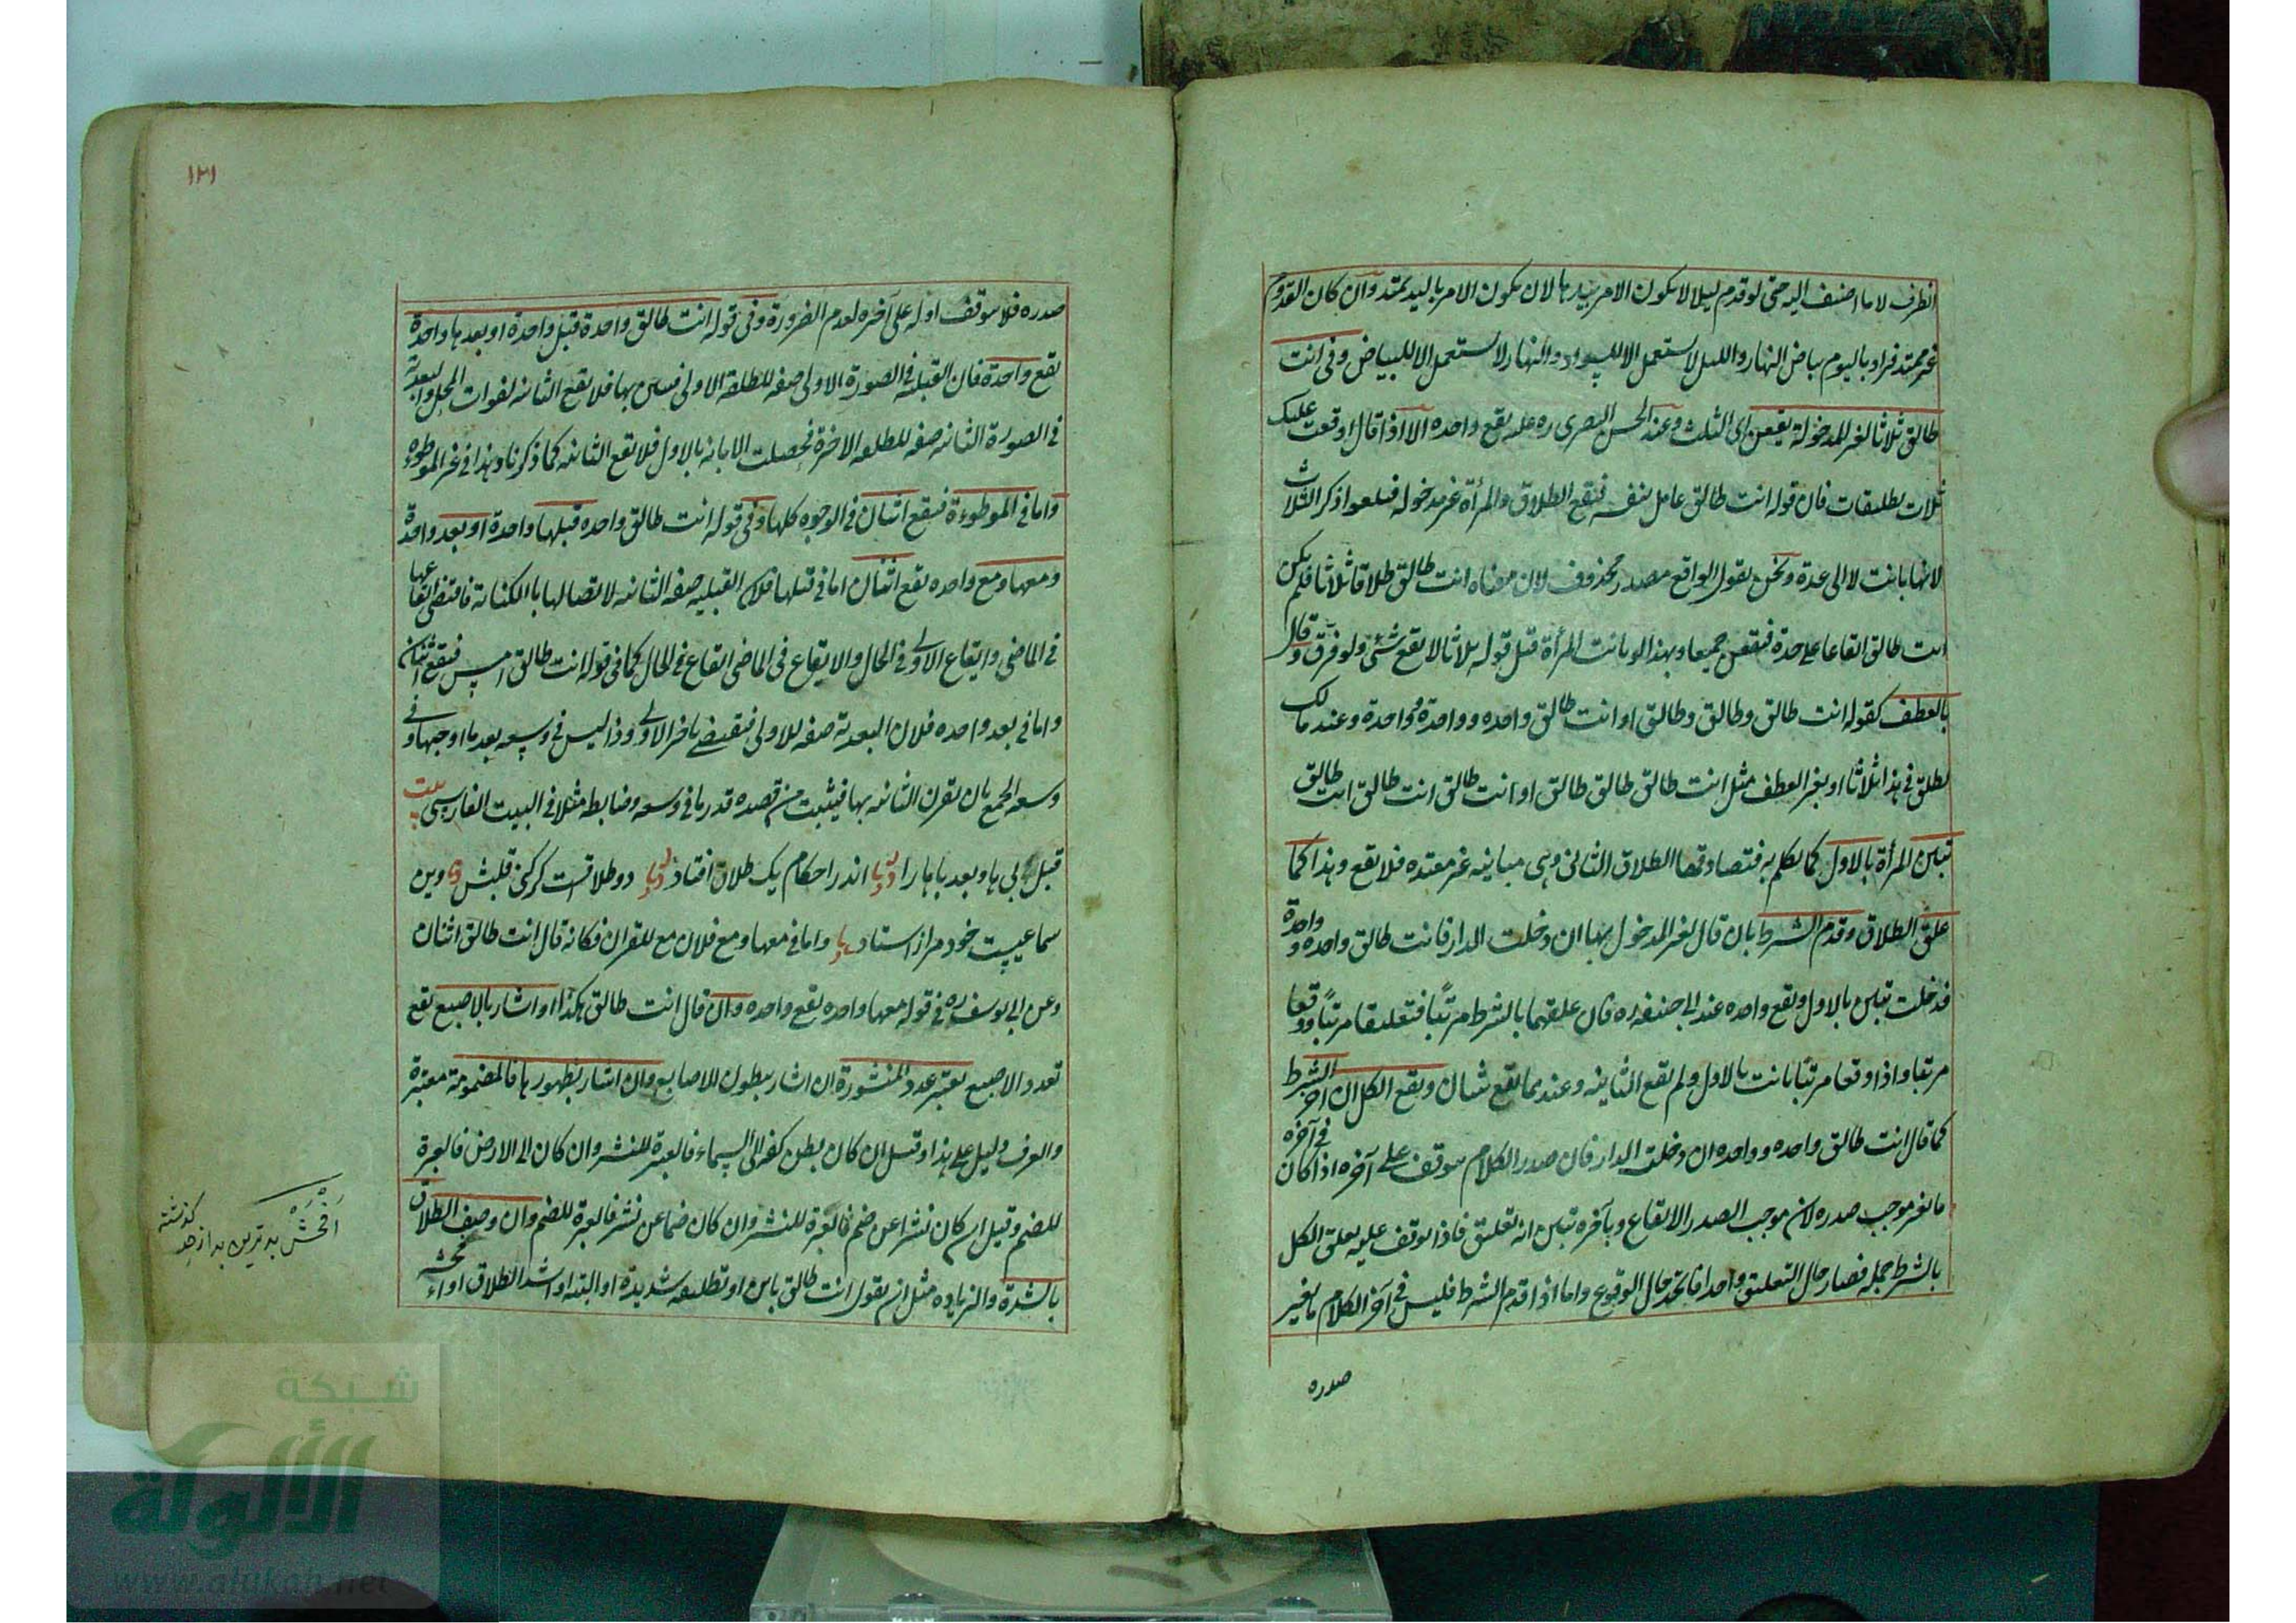 الظرف لا ما اضيف اليه حتى لو قدم ليلا لا يكون الامر بيدها لان يكون الامر باليد يمتد وان كان القدوم
غير ممتد فراد باليوم بياض النهار والليل لا يستعمل الا للسواد والنهار لا يستعمل الا للبياض وفى انت
طالق ثلاثا لغير المدخولة يقعن اى الثلث وعند الحسن البصرى ره عليه يقع واحده الا اذا قال اوقعت عليك
ثلاث تطليقات فان قوله انت طالق عامل بنفسه فيقع الطلاق والمرأة غير مدخوله فيلغوا ذكر الثلاث
لانها بانت لا الى عدة ونحن نقول الواقع مصدر محذوف لان معناه انت طالق طلاقا ثلاثا فلم يكن
انت طالق ايقاعا على حدة فيقعن جميعا وبهذا لو بانت المرأة قبل قوله ثلاثا لا يقع شئ ولو فرق وقال
بالعطف كقوله انت طالق وطالق وطالق او انت طالق واحده وواحدة وواحدة وعند مالك
يطلق فى هذا ثلاثا او بغير العطف مثل انت طالق طالق طالق او انت طالق انت طالق انت طالق
تبين المرأة بالاول كما تكلم به فتصادفها الطلاق الثانى وهى مباينه غير معتده فلا يقع وهذا كما
علق الطلاق وقدم الشرط بان قال لغير المدخول بها ان دخلت الدار فانت طالق واحده وواحدة
فدخلت تبين بالاول ويقع واحده عند ابى حنيفه ره فان علقهما بالشرط مرتبًا فتعليقا مرتبًا وقعا
مرتبا واذا وقعا مرتبًا بانت بالاول ولم يقع الثانيه وعندهما يقع ثنتان ويقع الكل ان اخر الشرط
كما قال انت طالق واحده وواحده ان دخلت الدار فان صدر الكلام موقف على آخره اذا كان فى آخره
ما يغير موجب صدره لان موجب الصدر الايقاع وبآخره تبين انه تعليق فاذا توقف عليه يعلق الكل
بالشرط جمله فصار حال التعليق واحدا فاتحد حال الوقوع واما اذا قدم الشرط فليس فى آخر الكلام ما يغير
صدره
١٣١
صدره فلا يتوقف اوله على آخره لعدم الضرورة وفى قوله انت طالق واحدة قبل واحدة او بعدها واحدة
يقع واحدة فان القبلية فى الصورة الاولى صفه للطلقة الاولى فتبين بها فلا يقع الثانيه لفوات المحل والبعدية
فى الصورة الثانيه صفه للطلقه الاخرة فحصلت الابانه بالاول فلا يقع الثانيه كما ذكرنا وهذا فى غير الموطوءة
واما فى الموطوءة فيقع اثنتان فى الوجوه كلها وفى قوله انت طالق واحده قبلها واحدة او بعد واحدة
ومعها ومع واحده يقع اثنتان اما فى قبلها فلان القبليه صفه الثانيه لاتصالها بالكناية فاقتضى ايقاعها
فى الماضى وايقاع الاولى فى الحال والايقاع فى الماضى ايقاع فى الحال كما فى قوله انت طالق امس فيقع اثنتان
واما فى بعد واحده فلان البعدية صفه للاولى فيقتضى تاخر الاولى وذا ليس فى وسعه بعد ما اوجبها وفى
وسعه الجمع بان يقرن الثانيه بها فيثبت من قصده قدر ما فى وسعه وضابطه مثلا فى البيت الفارسى بيت
قبل بى ها وبعد با ها را اندر احكام يك طلاق افتاد دو طلاقست كر كنى قلبش وين
سماعيست خود مرا ز استاد واما فى معها ومع فلان مع للقران فكانه قال انت طالق اثنتان
وعن ابى يوسف ره فى قوله معها واحده يقع واحده وان قال انت طالق هكذا او اشار بالاصبع يقع
تعدد الاصبع يعتبر عدد المنشورة ان اشار ببطون الاصابع وان اشار بظهورها فالمضمومة معتبرة
والعرف دليل على هذا وقيل ان كان بطن كفه الى السماء فالعبرة للنشر وان كان الى الارض فالعبرة
للضم وقيل ان كان نشرا عن ضم فالعبرة للنشر وان كان ضما عن نشر فالعبرة للضم وان وصف الطلاق
بالشدة والزياده مثل ان يقول انت طالق باين او تطليقه شديدة او البته او اشد الطلاق او افحشه
اَفْحَش بدترين بد از حد كذشته
شبكة
الألوكة
www.alukah.net